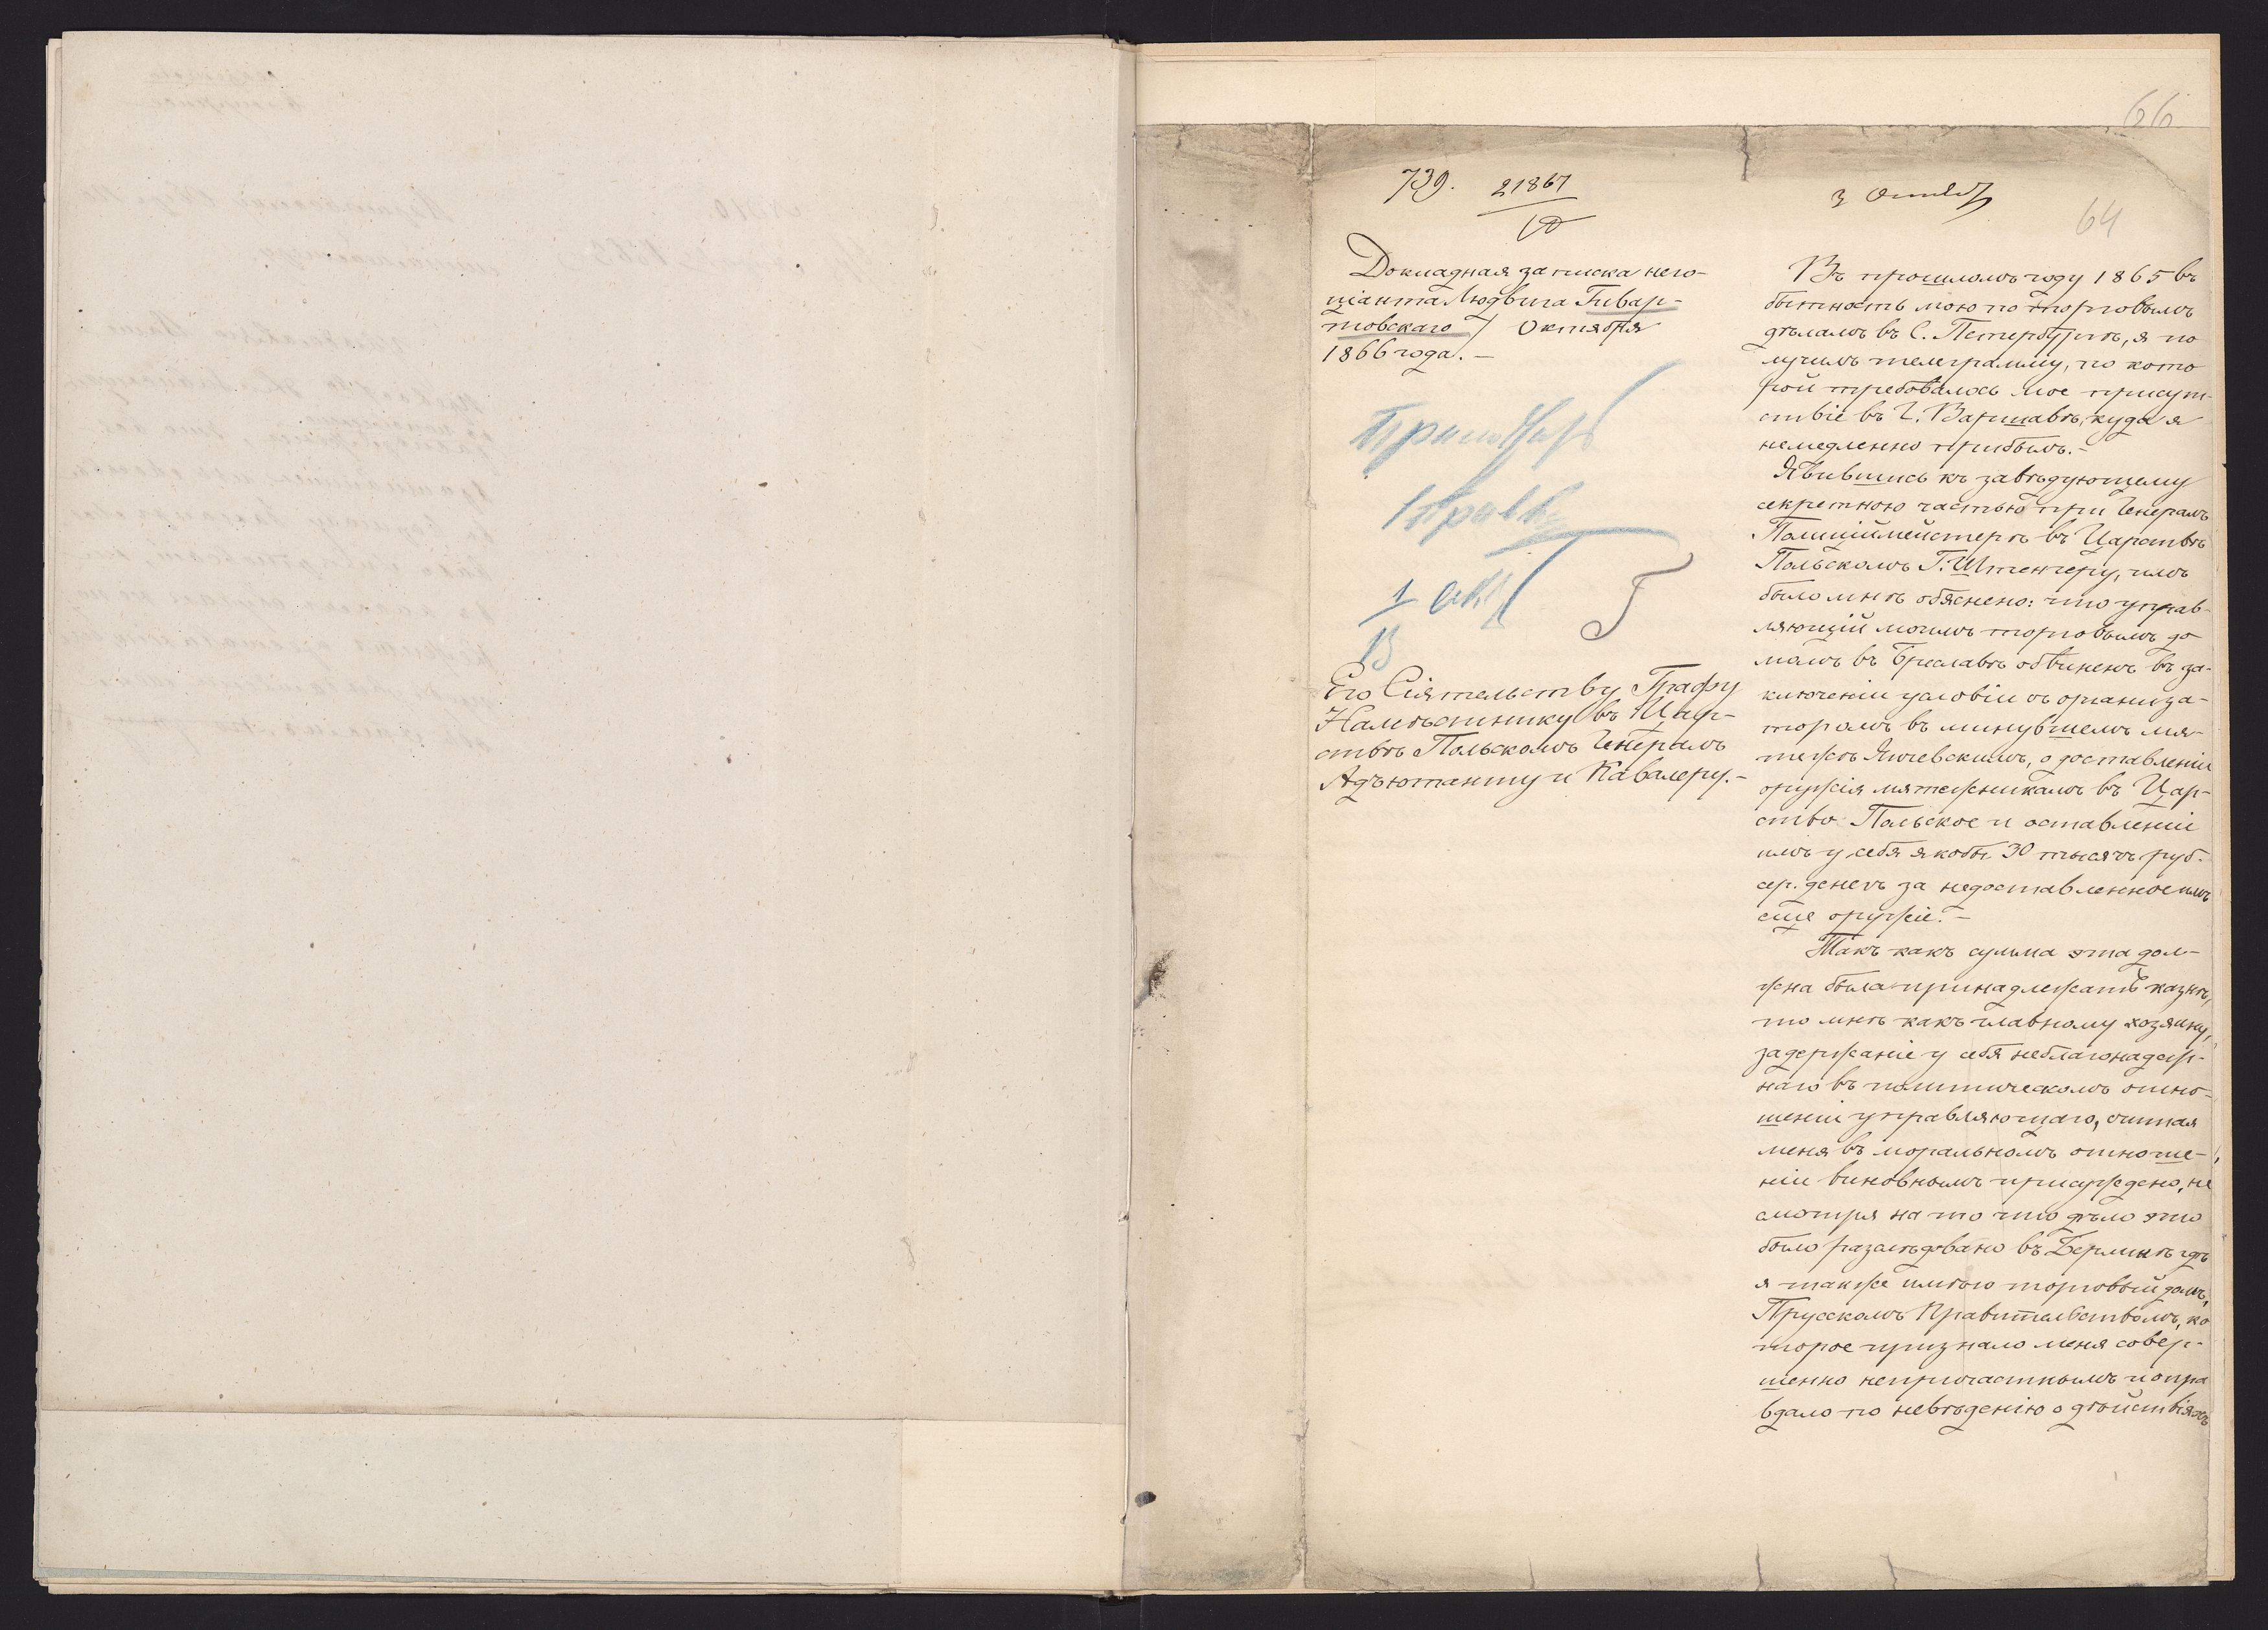 66
739. 21867
10
3 Октяб
64
Докладная записка него-
ціанта Людвига Гивар-
товскаго / Октября
1866 года. —
1 окт
Его Сіятельству Графу
Намѣстнику въ Цар-
ствѣ Польскомъ Генералъ
Адъютанту и Кавалеру. —
Въ прошломъ году 1865 въ
бытность мою по торговымъ
дѣламъ въ С. Петербургѣ, я по
лучилъ телеграмму, по кото
рой требовалось мое присут-
ствіе въ Г. Варшавѣ, куда я
немедленно прибылъ. —
Явившись къ завѣдующему
секретною частью при Генералъ
Полиціймейстерѣ въ Царствѣ
Польскомъ Г. Штенгеру, имъ
было мнѣ обяснено: что управ-
ляющій моимъ торговымъ до
момъ въ Бреславѣ обвиненъ въ за-
ключеніи условіи съ организа-
торомъ въ минувшемъ мя-
тежѣ Яичевскимъ, о доставленіи
оружія мятежникамъ въ Цар-
ство Польское и оставленіи
имъ у себя якобы 30 тысячъ руб.
сер. денегъ за недоставленное имъ
еще оружіе. —
Такъ какъ сумма эта дол-
жна была принадлежать казнѣ,
то мнѣ какъ главному хозяину,
задержаніе у себя неблагонадеж-
наго въ политическомъ отно-
шеніи управляющаго, считая
меня въ моральномъ отноше-
ніи виновнымъ присуждено, не
смотря на то что дѣло это
было разслѣдовано въ Берлинѣ гдѣ
я также имѣю торговый домъ,
Прусскомъ Правительствомъ, ко
торое признало меня совер-
шенно непричастнымъ и опра
вдало по невѣденію о дѣйствіяхъ